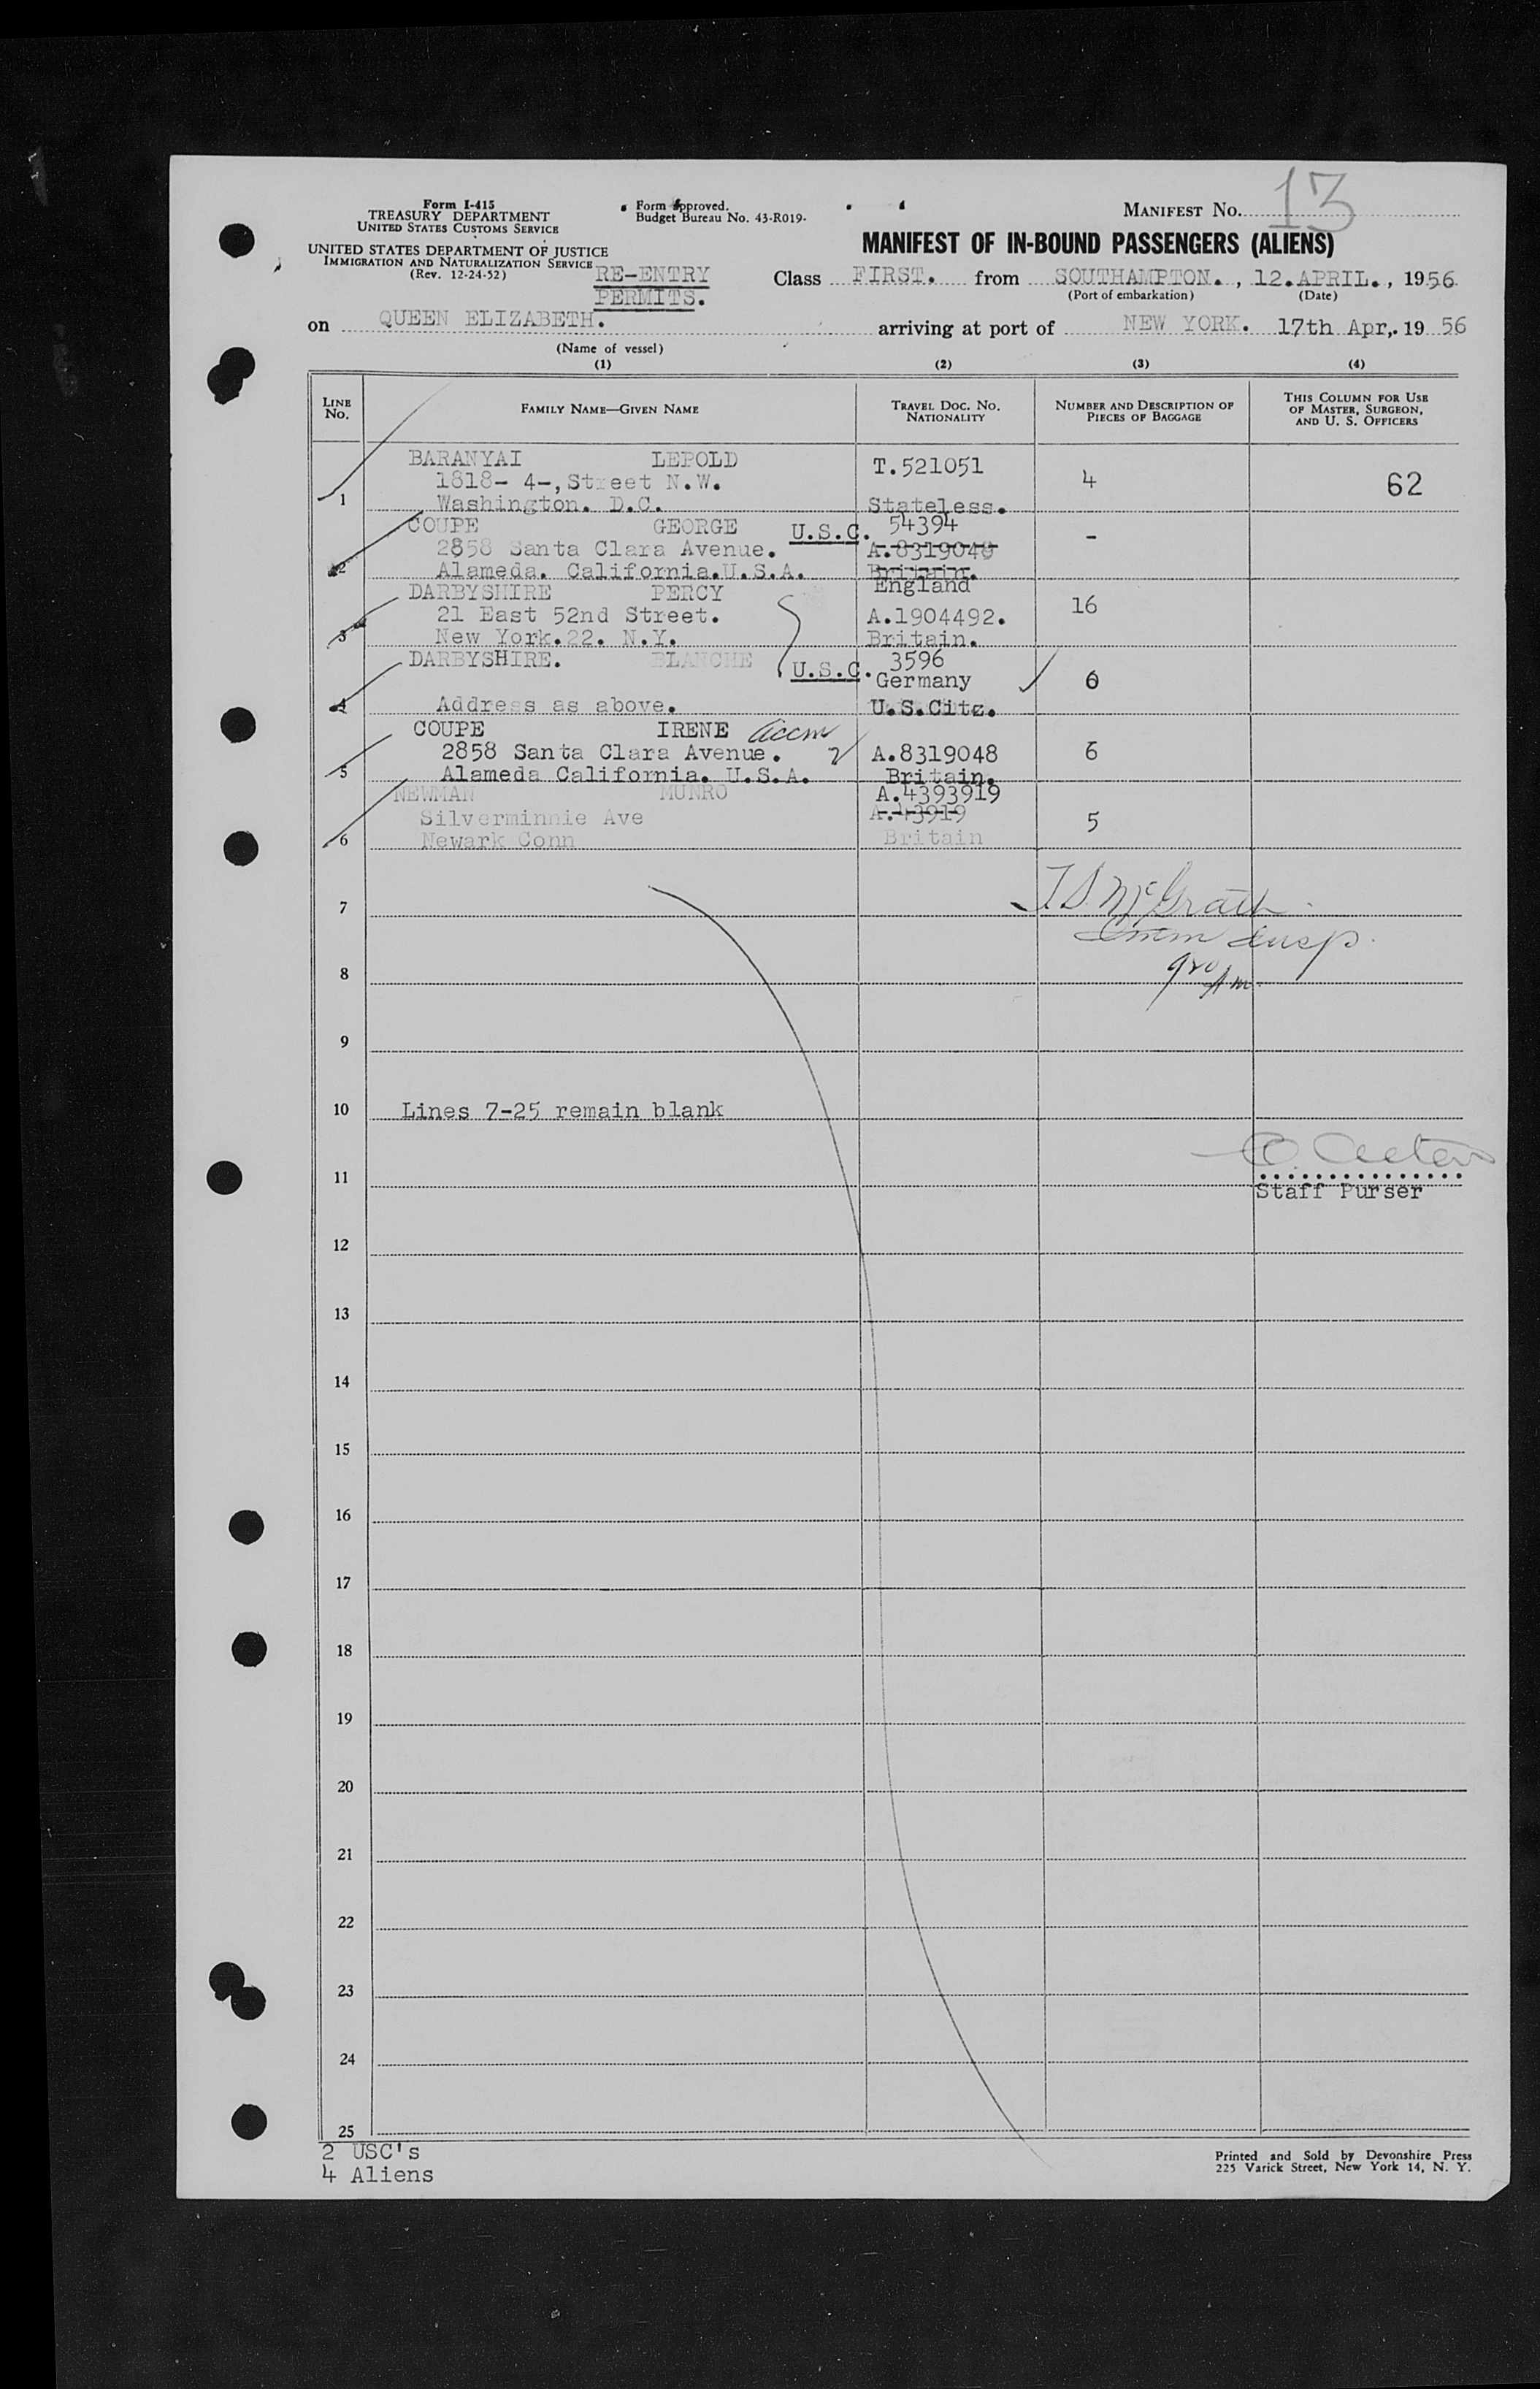 13
Form I-415
TREASURY DEPARTMENT
UNITED STATES CUSTOMS SERVICE
Form Approved.
Budget Bureau No. 43-R019.
MANIFEST No.
UNITED STATES DEPARTMENT OF JUSTICE
IMMIGRATION AND NATURALIZATION SERVICE
(Rev. 12-24-52)
RE-ENTRY
PERMITS.
MANIFEST OF IN-BOUND PASSENGERS (ALIENS)
Class FIRST. from SOUTHAMPTON., 12.APRIL., 1956
(Port of embarkation) (Date)
on QUEEN ELIZABETH. arriving at port of NEW YORK. 17th Apr,. 19 56
(Name of vessel)
(1) (2) (3) (4)
LINE No. FAMILY NAME—GIVEN NAME TRAVEL DOC. No. NATIONALITY NUMBER AND DESCRIPTION OF PIECES OF BAGGAGE THIS COLUMN FOR USE OF MASTER, SURGEON, AND U. S. OFFICERS
BARANYAI LEPOLD T.521051
1818- 4-, Street N.W. 4 62
1 Washington. D.C. Stateless.
COUPE GEORGE U.S.C. 54394
2858 Santa Clara Avenue. A.8319048 -
2 Alameda. California.U.S.A. Britain.
England
DARBYSHIRE PERCY 16
21 East 52nd Street. A.1904492.
3 New York.22. N.Y. Britain.
DARBYSHIRE. BLANCHE U.S.C. 3596
Germany 6
4 Address as above. U.S.Citz.
COUPE IRENE accm
2858 Santa Clara Avenue. 2 A.8319048 6
5 Alameda California. U.S.A. Britain.
NEWMAN MUNRO A.4393919
Silverminnie Ave A.43919 5
6 Newark Conn Britain
7 T.S. McGrath
Imm Insp.
8 920 Am
9
10 Lines 7-25 remain blank
11
Staff Purser
12
13
14
15
16
17
18
19
20
21
22
23
24
25
2 USC's
4 Aliens
Printed and Sold by Devonshire Press
225 Varick Street, New York 14, N. Y.